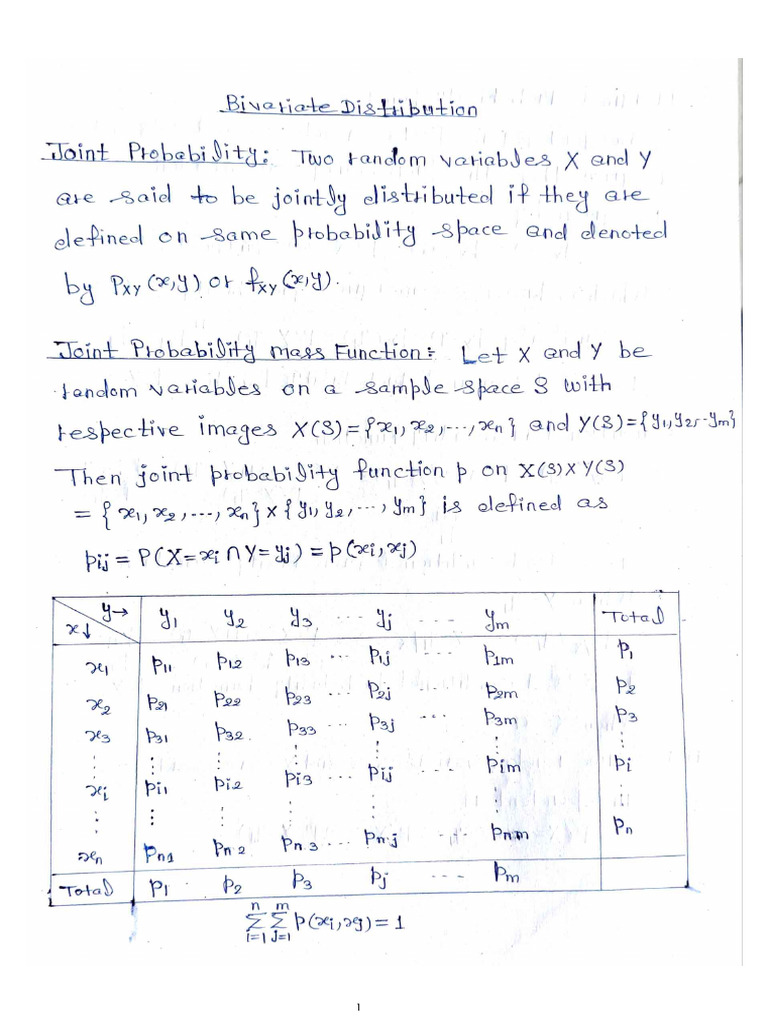 Bivariate Distribution
Joint Probability: Two random variables X and Y
are said to be jointly distributed if they are
defined on same probability space and denoted
by PXY (x,y) or fXY (x,y).
Joint Probability mass Function: Let X and Y be
random variables on a sample space S with
respective images X(S)={x1,x2,...,xn} and Y(S)={y1,y2,..ym}
Then joint probability function p on X(S)×Y(S)
={x1,x2,...,xn}×{y1,y2,...,ym} is defined as
pij = P(X=xi ∩ Y=yj) = p(xi,xj)
x↓ y→ y1 y2 y3 ... yj ... ym Total
x1 p11 p12 p13 ... p1j ... p1m p1
x2 p21 p22 p23 ... p2j ... p2m p2
x3 p31 p32 p33 ... p3j ... p3m p3
⋮ ⋮ ⋮ ⋮ ⋮ ⋮ ⋮
xi pi1 pi2 pi3 ... pij ... pim pi
⋮ ⋮ ⋮ ⋮ ⋮ ⋮ ⋮
xn pn1 pn2 pn3 ... pnj ... pnm pn
Total p1 p2 p3 pj ... pm
n∑i=1 m∑j=1 p(xi,xj)=1
1